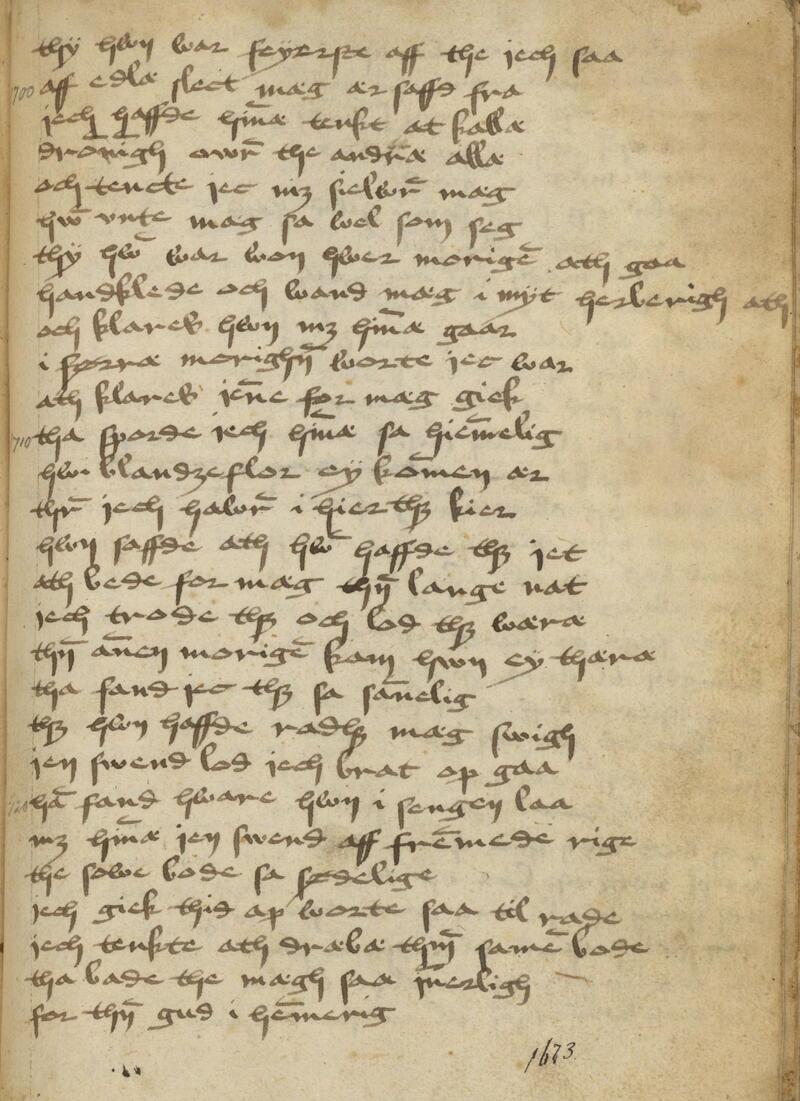 thy hwn war feyerste aff the jech saa
700 aff edlæ slect mæg ær saffd fra
jech haffde hm̄æ tenkt at kallæ
dronigh owr̄ the andræ allæ
och tencte jec mz sielwr̄ mæg
hw̄ vnte mæg sa wel som seg
thy hw̄ war won hwer morigē ath gaa
handklede och wand mæg i myt herberigh ath
och klares hwn mz hm̄æ gaar
i førræ morighn̄ worte jec war
ath klares jēne for mæg giek
710 tha sporde jech hm̄æ sa hiem̄elig
hwi blandzeflor ey kom̄en ær
thr̄ jech hawr̄ i hierthꝫ kier
hwn saffde ath hw̄ haffde thꝫ jet
ath bede for mæg thn̄ lange nat
jech trode thꝫ och lod thꝫ wæræ
thn̄ an̄en morigē kom hwn ey thæræ
tha fand jec thꝫ sa san̄elig
thꝫ hwn haffde radhꝫ mæg swigh
jen swend lod jech brat op gaa
720 hā fand hware hwn i sengen laa
mz hm̄æ jen swend aff frēmede rige
the sowe bode sa sødelige
jech giek thid op worte saa til rade
jech tenkte ath dræbæ thm̄ samē bode
tha bade the mægh saa jn̄erligh
for thn̄ gud i hēmerig
1673